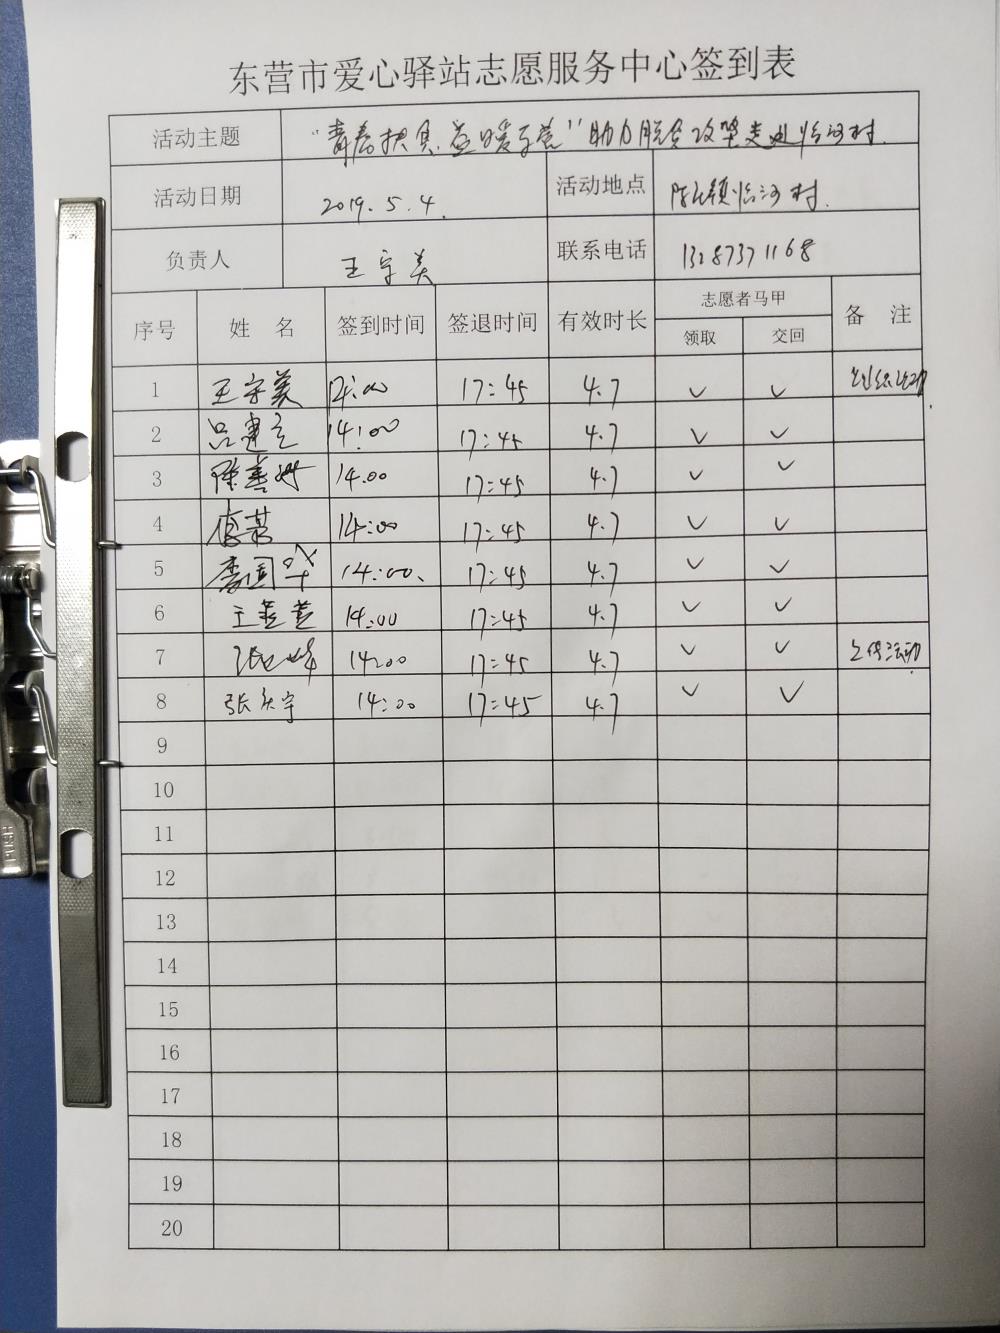 东营市爱心驿站志愿服务中心签到表
活动主题 "青春扶贫 益暖东营"助力脱贫攻坚走进临河村
活动日期 2019.5.4. 活动地点 陈庄镇临河村.
负责人 王宇美 联系电话 13287371168
序号 姓 名 签到时间 签退时间 有效时长 志愿者马甲 备 注
领取 交回
1 王宇美 12:00 17:45 4.7 ✓ ✓
2 吕建立 14:00 17:45 4.7 ✓ ✓
3 陈善 14.00 17:45 4.7 ✓ ✓
4 14:00 17:45 4.7 ✓ ✓
5 李国华 14:00、 17:45 4.7 ✓ ✓
6 王 14:00 17:45 4.7 ✓ ✓
7 张 峰 14:00 17:45 4.7 ✓ ✓ 上传活动
8 张庆宇 14:00 17:45 4.7 ✓ ✓
9
10
11
12
13
14
15
16
17
18
19
20